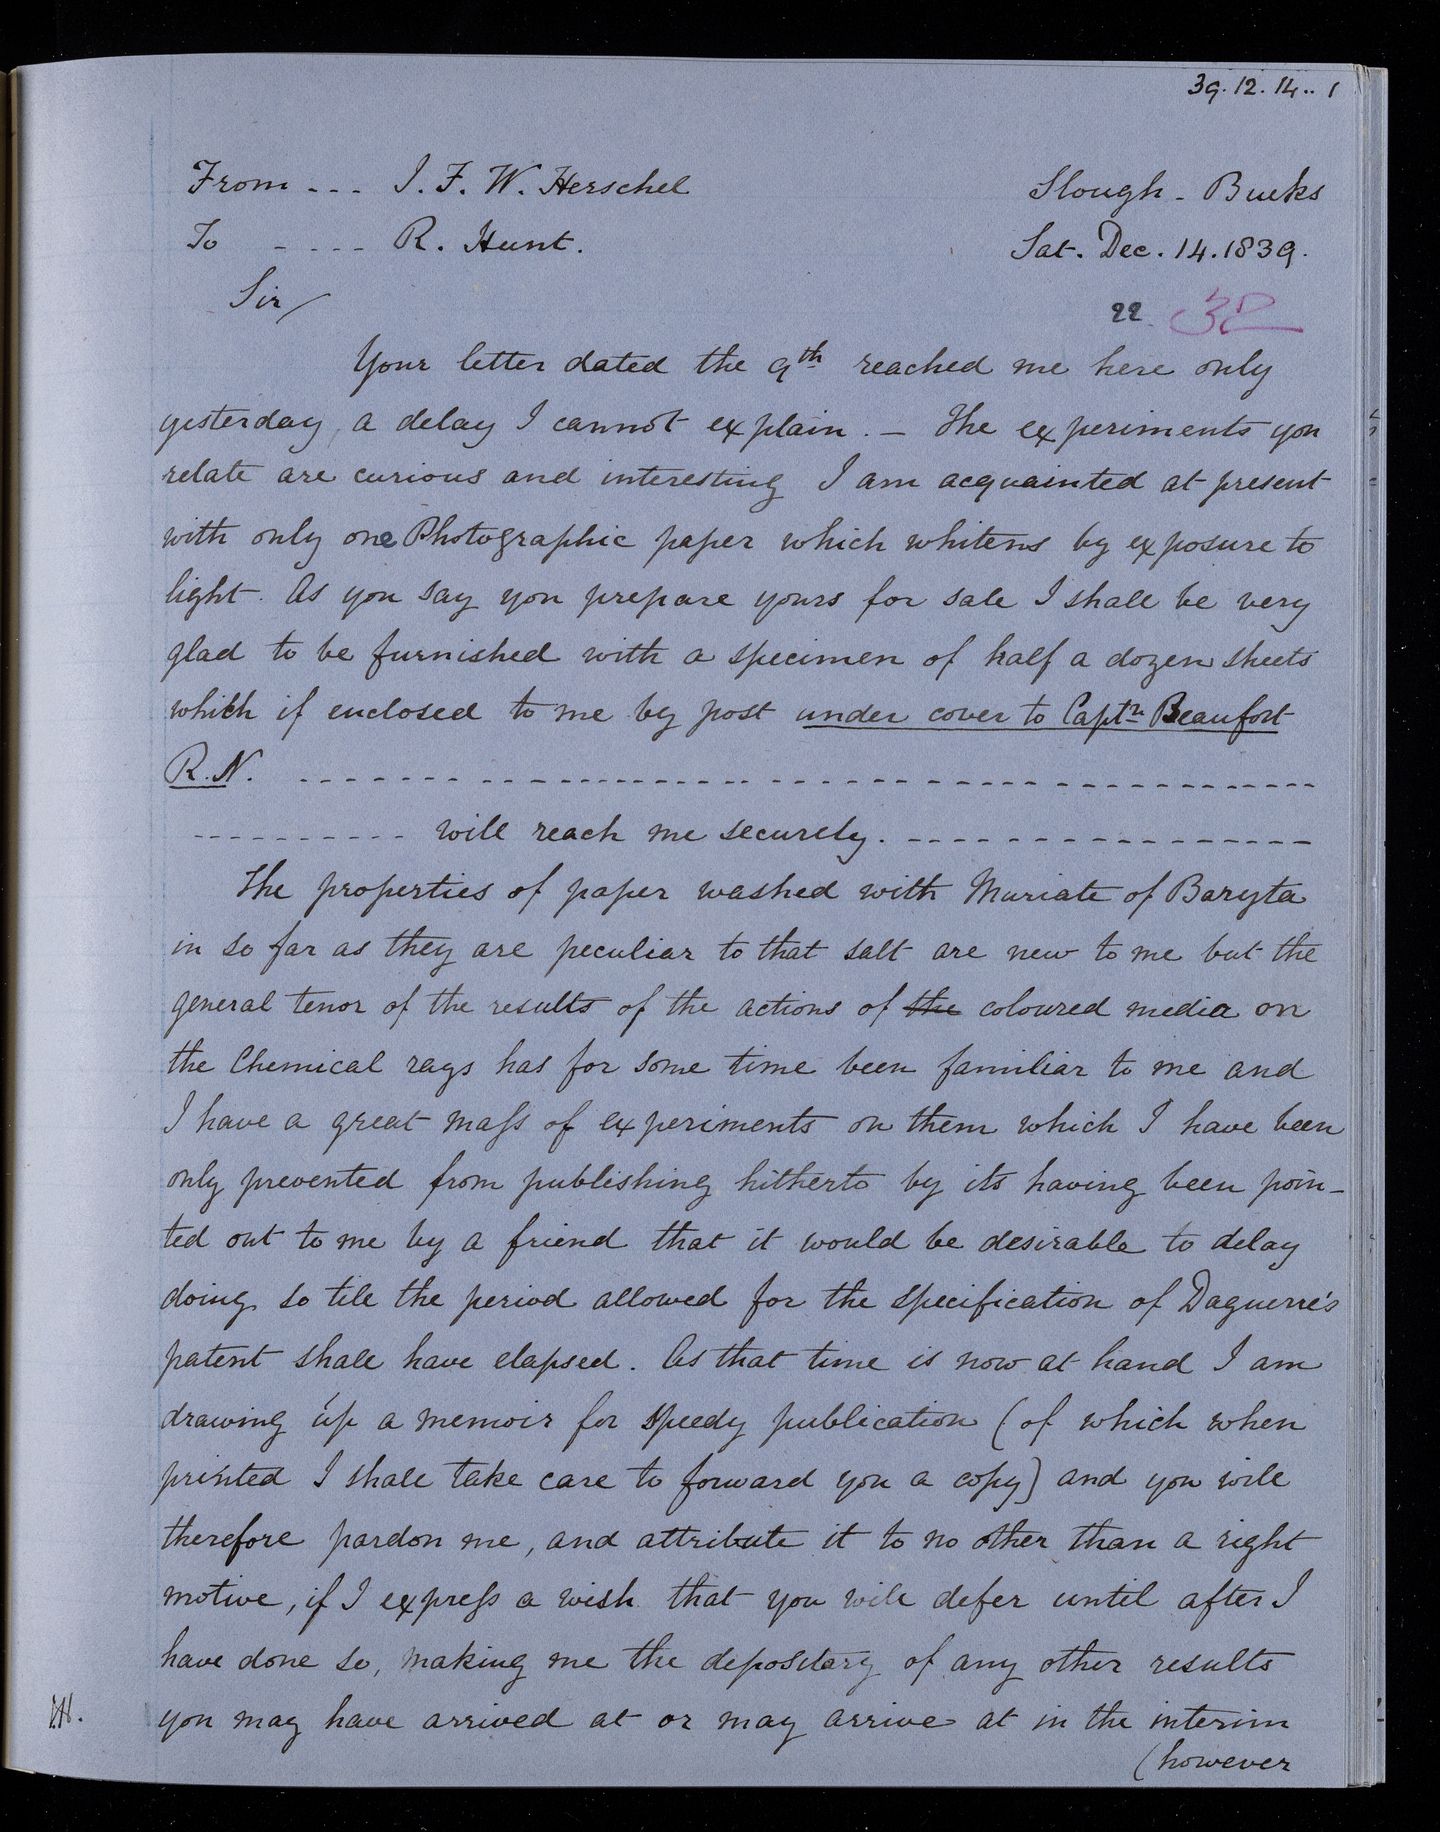 39.12.14..1
From --- J. F. W. Herschel
Slough - Bucks
To ---- R. Hunt.
Sat. Dec. 14. 1839.
Sir/
22 32
Your letter dated the 9th reached me here only
yesterday, a delay I cannot explain. – The experiments you
relate are curious and interesting I am acquainted at present
with only one Photographic paper which whitens by exposure to
light. As you say you prepare yours for sale I shall be very
glad to be furnished with a specimen of half a dozen sheets
which if enclosed to me by post under cover to Captn Beaufort
R.N. ----------------------------------------
---------- will reach me securely. ----------------
The properties of paper washed with Muriate of Baryta
in so far as they are peculiar to that salt are new to me but the
general tenor of the results of the actions of the coloured media on
the Chemical rays has for some time been familiar to me and
I have a great mass of experiments on them which I have been
only prevented from publishing hitherto by its having been poin-
ted out to me by a friend that it would be desirable to delay
doing so till the period allowed for the specification of Daguerre's
patent shall have elapsed. As that time is now at hand I am
drawing up a memoir for speedy publication (of which when
printed I shall take care to forward you a copy) and you will
therefore pardon me, and attribute it to no other than a right
motive, if I express a wish that you will defer until after I
have done so, making me the depositary of any other results
you may have arrived at or may arrive at in the interim
(however